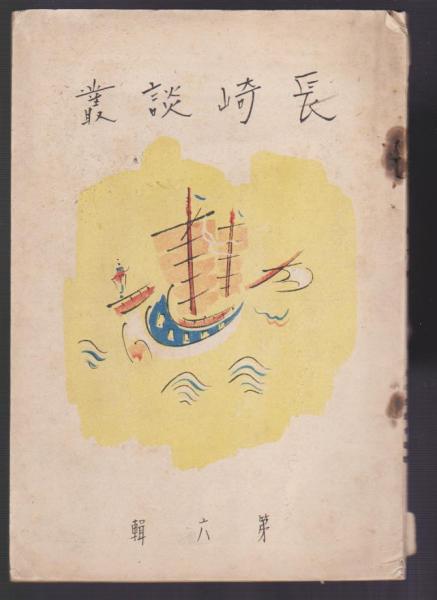 長崎談叢
第六輯